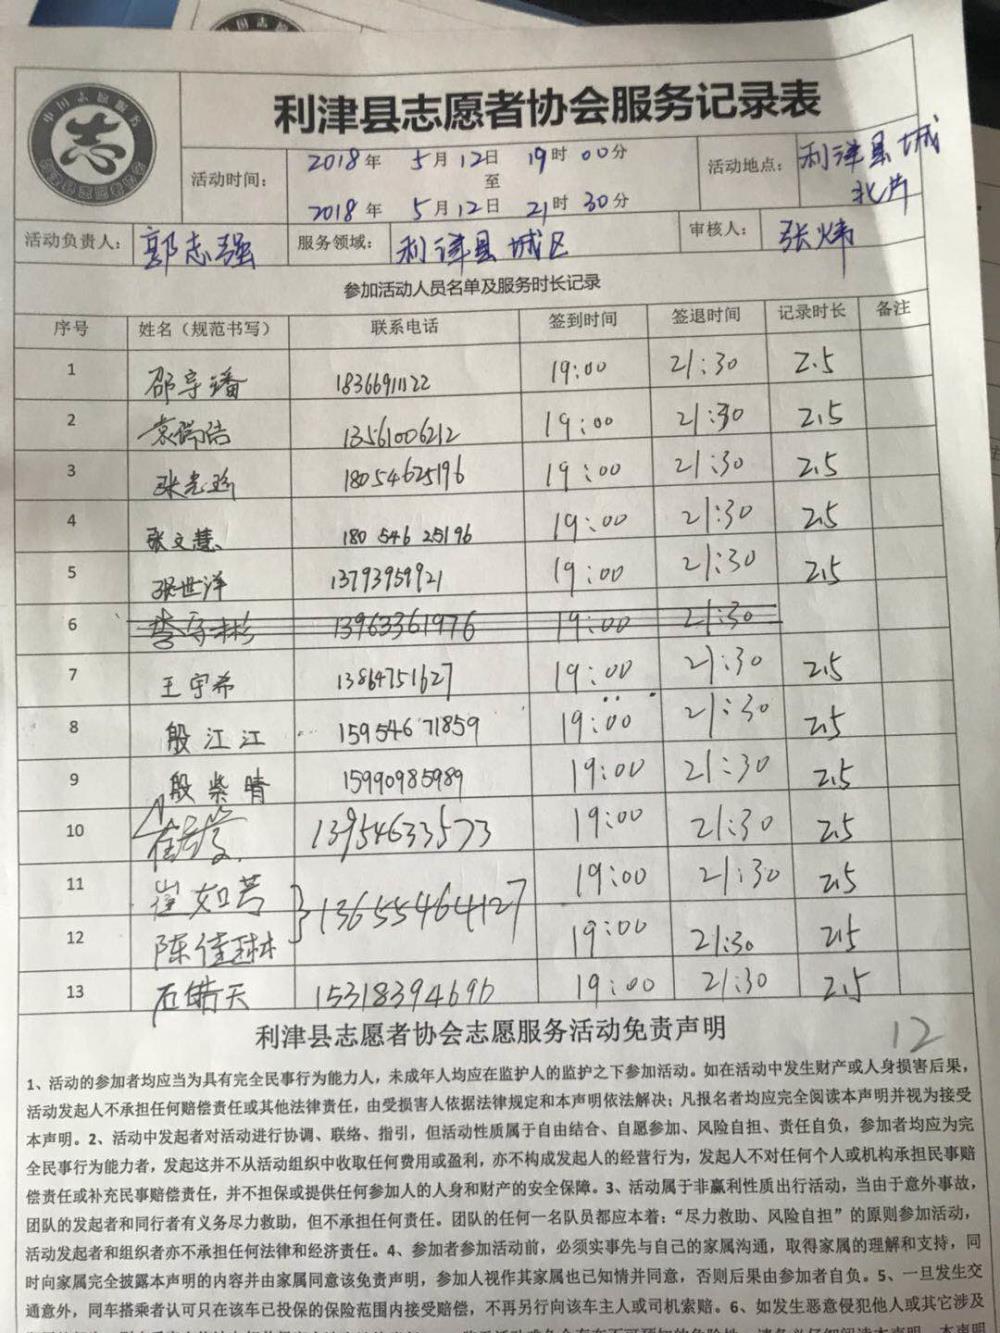 利津县志愿者协会服务记录表
活动时间：
2018年 5月12日 19时00分
至
2018年 5月12日 21时30分
活动地点：
利津县城
北片
活动负责人：
郭志强
服务领域：
利津县城区
审核人：
张炜
参加活动人员名单及服务时长记录
序号 姓名（规范书写） 联系电话 签到时间 签退时间 记录时长 备注
1 邵宇 18366911122 19:00 21:30 2.5
2 袁瑞浩 13561006212 19:00 21:30 2.5
3 18054625196 19:00 21:30 2.5
4 张文慧 180 546 25196 19:00 21:30 2.5
5 张世洋 13793959921 19:00 21:30 2.5
6 13963361976 19:00 21:30
7 王宇希 13864751627 19:00 21:30 2.5
8 殷江江 159546 71859 19:00 21:30 2.5
9 殷紫晴 15990985989 19:00 21:30 2.5
10 13954633573 19:00 21:30 2.5
11 崔如芳 13655464127 19:00 21:30 2.5
12 陈佳琳 19:00 21:30 2.5
13 石晴天 15318394696 19:00 21:30 2.5
12
利津县志愿者协会志愿服务活动免责声明
1、活动的参加者均应当为具有完全民事行为能力人，未成年人均应在监护人的监护之下参加活动。如在活动中发生财产或人身损害后果，
活动发起人不承担任何赔偿责任或其他法律责任，由受损害人依据法律规定和本声明依法解决；凡报名者均应完全阅读本声明并视为接受
本声明。2、活动中发起者对活动进行协调、联络、指引，但活动性质属于自由结合、自愿参加、风险自担、责任自负，参加者均应为完
全民事行为能力者，发起这并不从活动组织中收取任何费用或盈利，亦不构成发起人的经营行为，发起人不对任何个人或机构承担民事赔
偿责任或补充民事赔偿责任，并不担保或提供任何参加人的人身和财产的安全保障。3、活动属于非赢利性质出行活动，当由于意外事故，
团队的发起者和同行者有义务尽力救助，但不承担任何责任。团队的任何一名队员都应本着：“尽力救助、风险自担”的原则参加活动，
活动发起者和组织者亦不承担任何法律和经济责任。4、参加者参加活动前，必须实事先与自己的家属沟通，取得家属的理解和支持，同
时向家属完全披露本声明的内容并由家属同意该免责声明，参加人视作其家属也已知情并同意，否则后果由参加者自负。5、一旦发生交
通意外，同车搭乘者认可只在该车已投保的保险范围内接受赔偿，不再另行向该车主人或司机索赔。6、如发生恶意侵犯他人或其它涉及